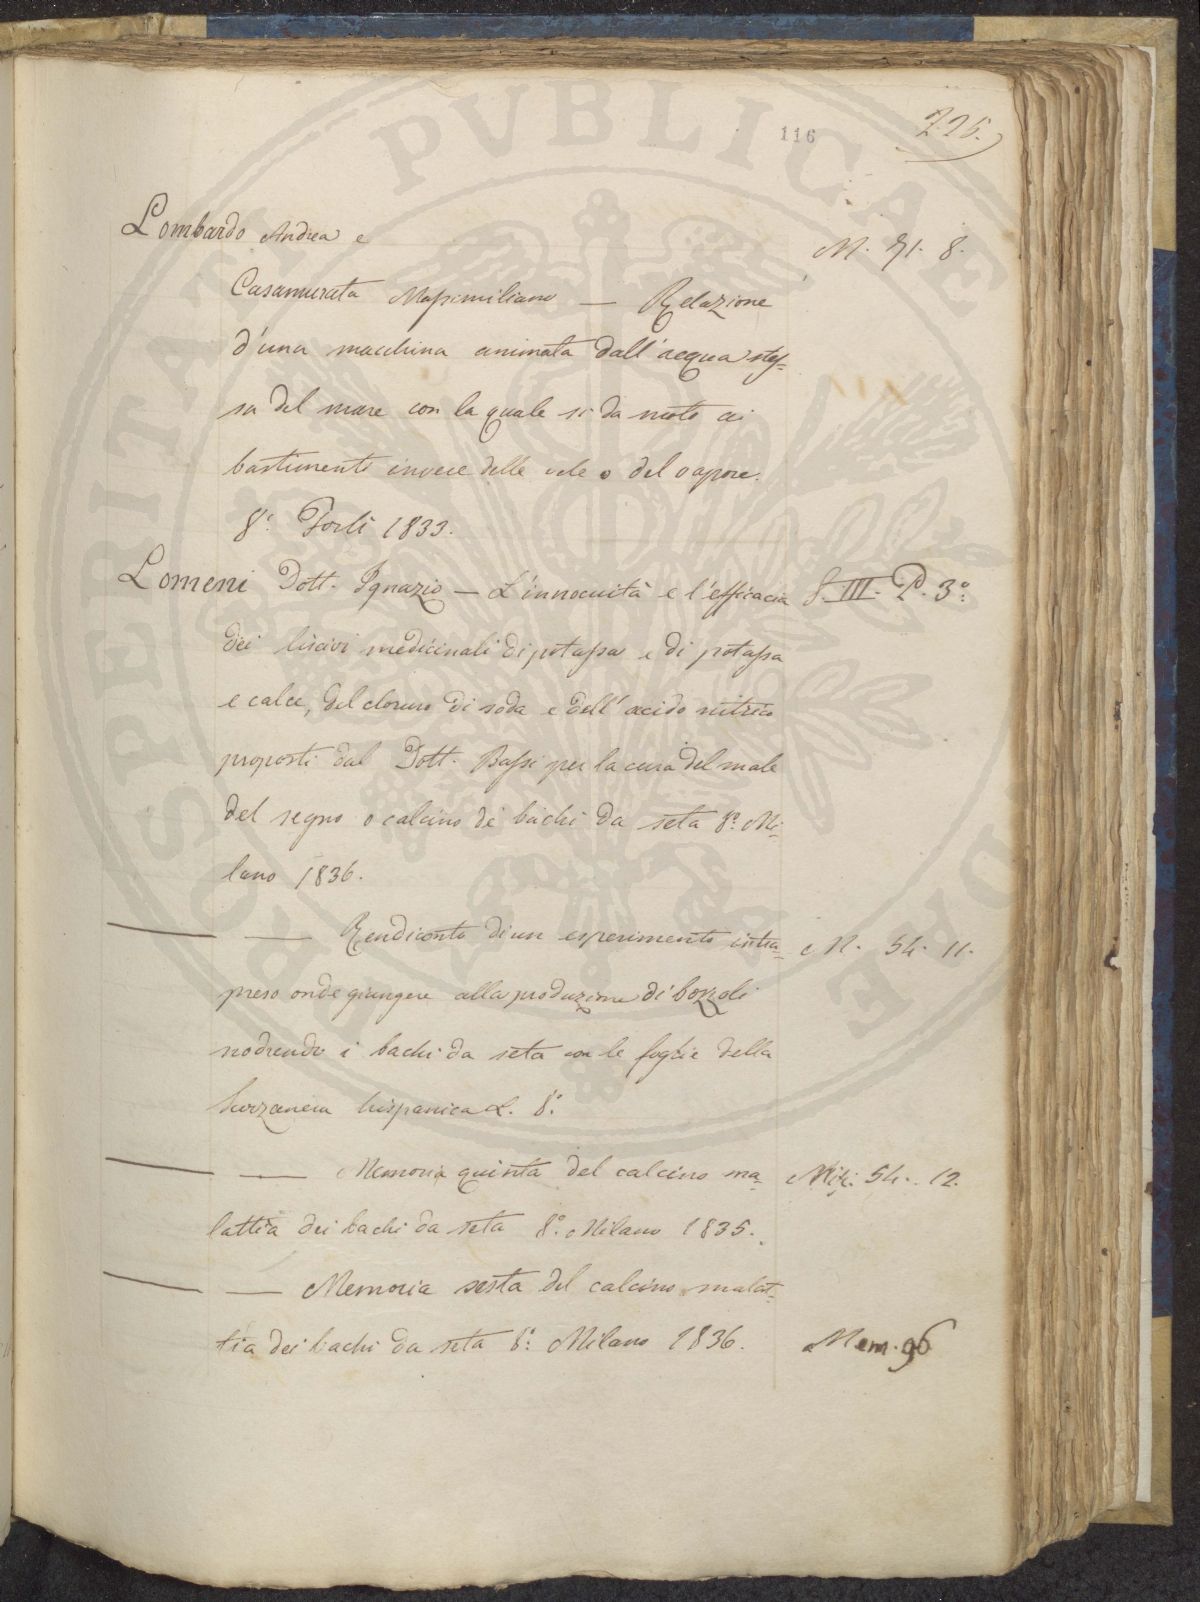 116
226.
Lombardo Andrea e
M. 71. 8.
Casamurata Massimiliano — Relazione
d'una macchina animata dall'acqua stes-
sa del mare con la quale si da moto ai
bastimenti invece delle vele o del vapore.
8º. Forlì 1833.
Lomeni Dott. Ignazio — L'innocuità e l'efficacia
S. III. P. 3º.
dei liscivi medicinali di potassa e di potassa
e calce, del cloruro di soda e dell'acido nitrico
proposti dal Dott. Bassi per la cura del male
del segno o calcino de' bachi da seta 8º. Mi-
lano 1836.
— — Rendiconto di un esperimento intra-
M. 54. 11.
preso onde giungere alla produzione di bozzoli
nodrendo i bachi da seta con le foglie della
Scorzonera hispanica L. 8º.
— — Memoria quinta del calcino ma-
54. 12.
lattia dei bachi da seta 8º. Milano 1835.
— — Memoria sesta del calcino malat-
tia dei bachi da seta 8º. Milano 1836.
Mem. 96
PROSPERITATI PVBLICAE